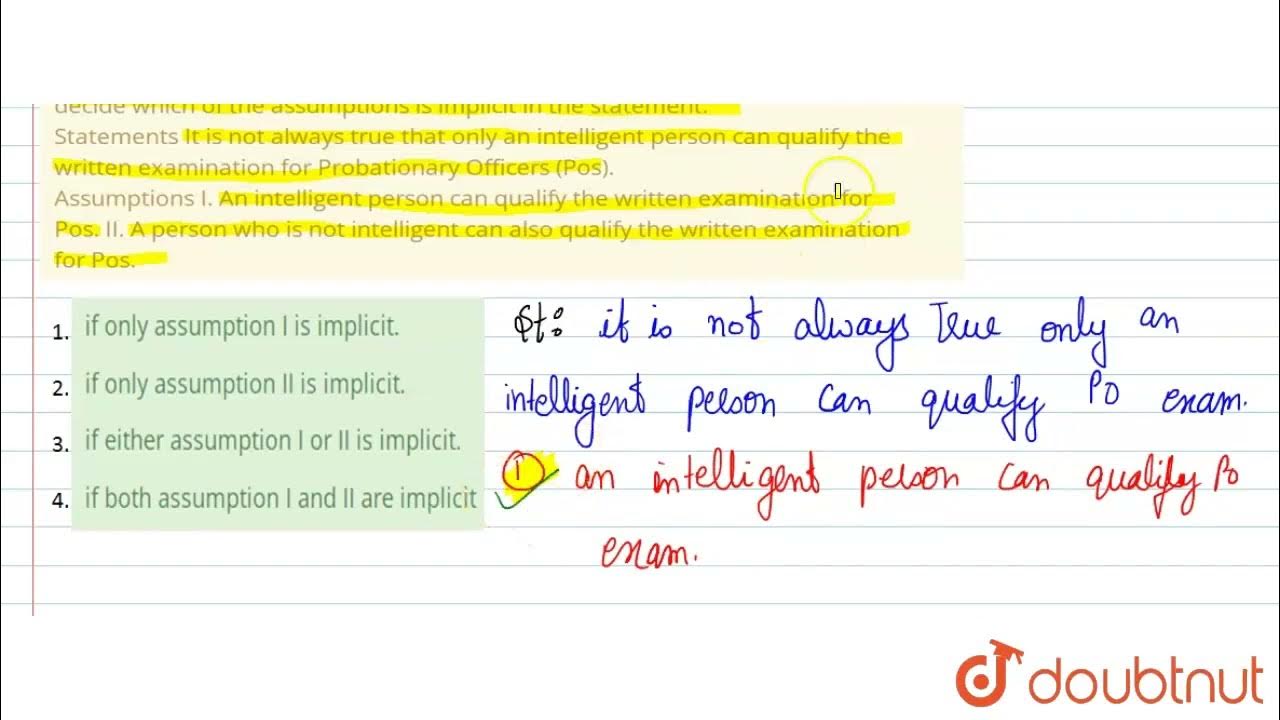 decide which of the assumptions is implicit in the statement.
Statements It is not always true that only an intelligent person can qualify the
written examination for Probationary Officers (Pos).
Assumptions I. An intelligent person can qualify the written examination for
Pos. II. A person who is not intelligent can also qualify the written examination
for Pos.
1. if only assumption I is implicit.
2. if only assumption II is implicit.
3. if either assumption I or II is implicit.
4. if both assumption I and II are implicit
St: it is not always True only an
intelligent person can qualify PO exam.
I an intelligent person can qualify Po
exam.
doubtnut